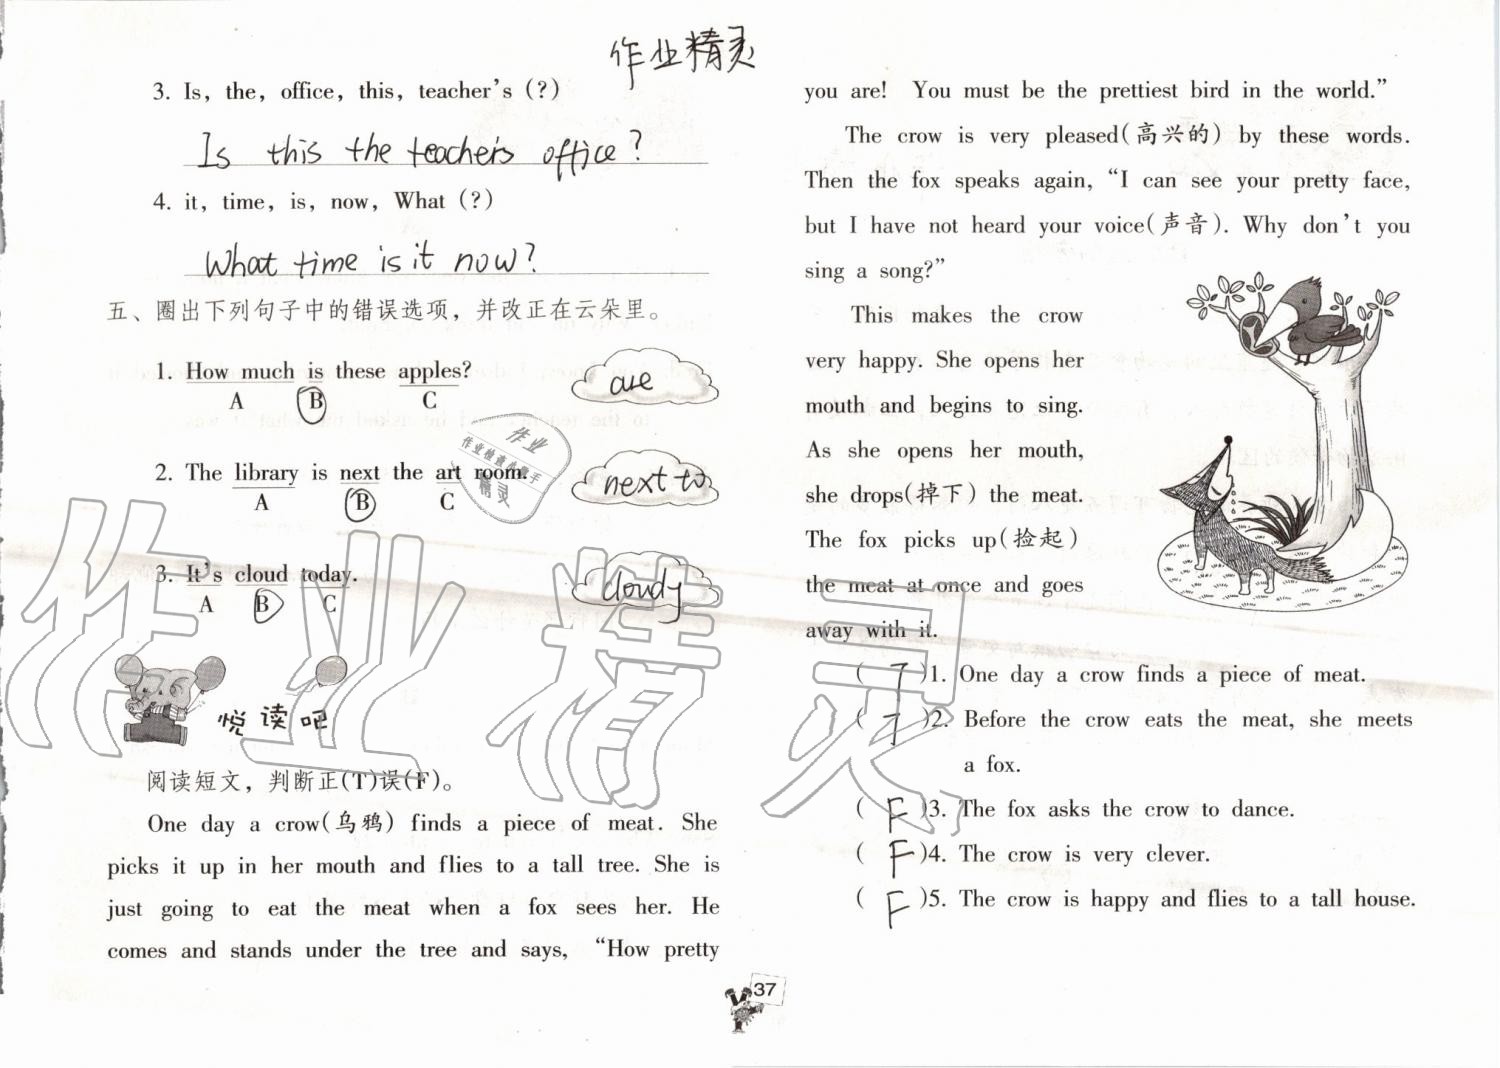 作业精灵
3. Is, the, office, this, teacher's (?)
Is this the teacher's office?
4. it, time, is, now, What (?)
What time is it now?
五、圈出下列句子中的错误选项，并改正在云朵里。
1. How much is these apples?
are
A B C
2. The library is next the art room.
next to
A B C
3. It's cloud today.
cloudy
A B C
悦读吧
阅读短文，判断正(T)误(F)。
One day a crow(乌鸦) finds a piece of meat. She
picks it up in her mouth and flies to a tall tree. She is
just going to eat the meat when a fox sees her. He
comes and stands under the tree and says, “How pretty
you are! You must be the prettiest bird in the world.”
The crow is very pleased(高兴的) by these words.
Then the fox speaks again, “I can see your pretty face,
but I have not heard your voice(声音). Why don't you
sing a song?”
This makes the crow
very happy. She opens her
mouth and begins to sing.
As she opens her mouth,
she drops(掉下) the meat.
The fox picks up(捡起)
the meat at once and goes
away with it.
( T )1. One day a crow finds a piece of meat.
( T )2. Before the crow eats the meat, she meets
a fox.
( F )3. The fox asks the crow to dance.
( F )4. The crow is very clever.
( F )5. The crow is happy and flies to a tall house.
37
作业精灵
作业
作业检查小帮手
精灵